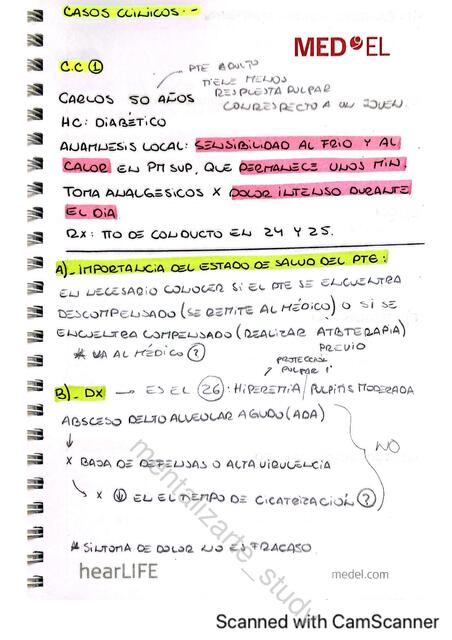 CASOS CLÍNICOS.-
MED EL
C.C ①
PTE ADULTO
TIENE MENOS
RESPUESTA PULPAR
CON RESPECTO A UN JOVEN.
CARLOS 50 AÑOS
HC: DIABÉTICO
ANAMNESIS LOCAL: SENSIBILIDAD AL FRIO Y AL
CALOR EN PM SUP, QUE PERMANECE UNOS MIN.
TOMA ANALGESICOS X DOLOR INTENSO DURANTE
EL DIA
RX: TTO DE CONDUCTO EN 24 Y 25.
A)_ IMPORTANCIA DEL ESTADO DE SALUD DEL PTE:
EN NECESARIO CONOCER SI EL PTE SE ENCUENTRA
DESCOMPENSADO (SE REMITE AL MÉDICO) O SI SE
ENCUENTRA COMPENSADO (REALIZAR ATBTERAPIA)
PREVIO
* VA AL MÉDICO ?
PROTECCION
PULPAR I
B)_ DX → ES EL 26: HIPEREMIA / PULPITIS MODERADA
ABSCESO DENTO ALVEOLAR AGUDO (ADA)
↓
NO
x BAJA DE DEFENSAS O ALTA VIRULENCIA
↘ x ↓ EN EL TIEMPO DE CICATRIZACIÓN ?
* SINTOMA DE DOLOR NO ES FRACASO
mentalizarte_study
hearLIFE
medel.com
Scanned with CamScanner